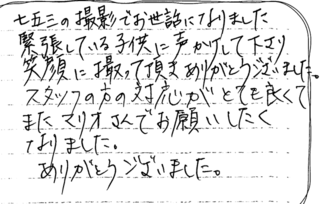 七五三の撮影でお世話になりました
緊張している子供に声かけして下さり
笑顔に撮って頂きありがとうございました。
スタッフの方の対応がとても良くて
またマリオさんでお願いしたく
なりました。
ありがとうございました。